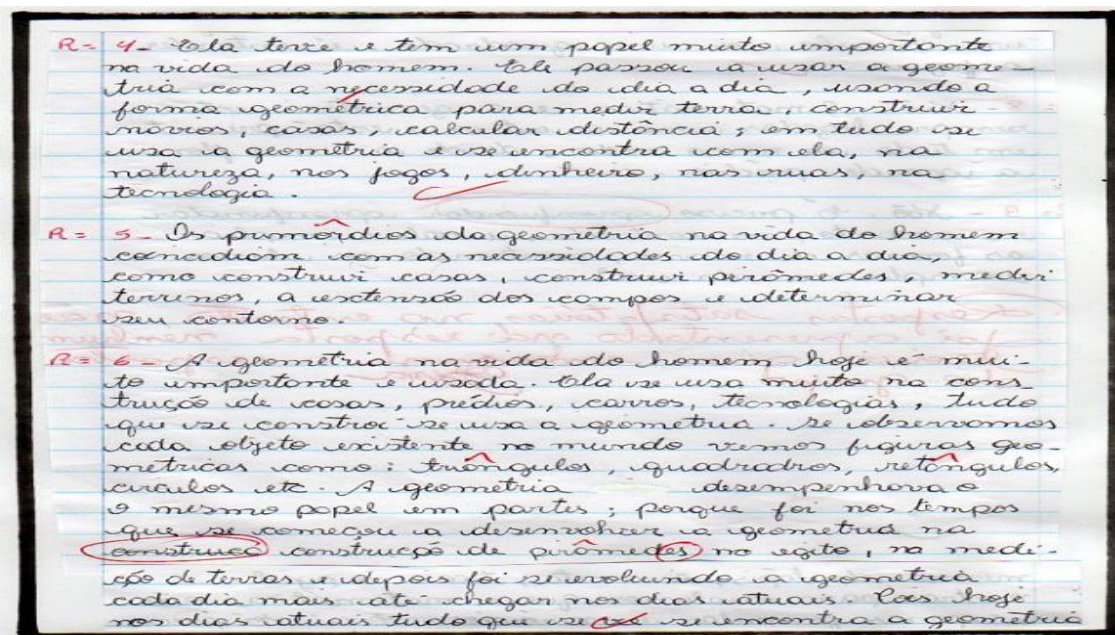 R= 4- Ela teve e tem um papel muito importante
na vida do homem. Ele passou a usar a geome-
tria com a necessidade do dia a dia, usando a
forma geométrica para medir terra, construir
navios, casas, calcular distância; em tudo se
usa a geometria e se encontra com ela, na
natureza, nos jogos, dinheiro, nas ruas, na
tecnologia.
R= 5- Os primórdios da geometria na vida do homem
concidiam com as necessidades do dia a dia,
como construir casas, construir pirâmedes, medir
terrenos, a esctensão dos campos e determinar
seu contorno.
R= 6- A geometria na vida do homem hoje é mui-
to importante e usada. Ela se usa muito na cons-
trução de casas, prédios, carros, tecnologias, tudo
que se constroi se usa a geometria. Se observamos
cada objeto existente no mundo vemos figuras geo-
metricas como: triângulos, quadradros, retângulos,
circulos etc. A geometria desempenhava o
o mesmo papel em partes; porque foi nos tempos
que se começou a desenvolver a geometria na
construcã construcção de pirâmedes no egito, na medi-
ção de terras e depois foi se evoluindo a geometria
cada dia mais até chegar nos dias atuais. Pois hoje
nos dias atuais tudo que se vê se encontra a geometria